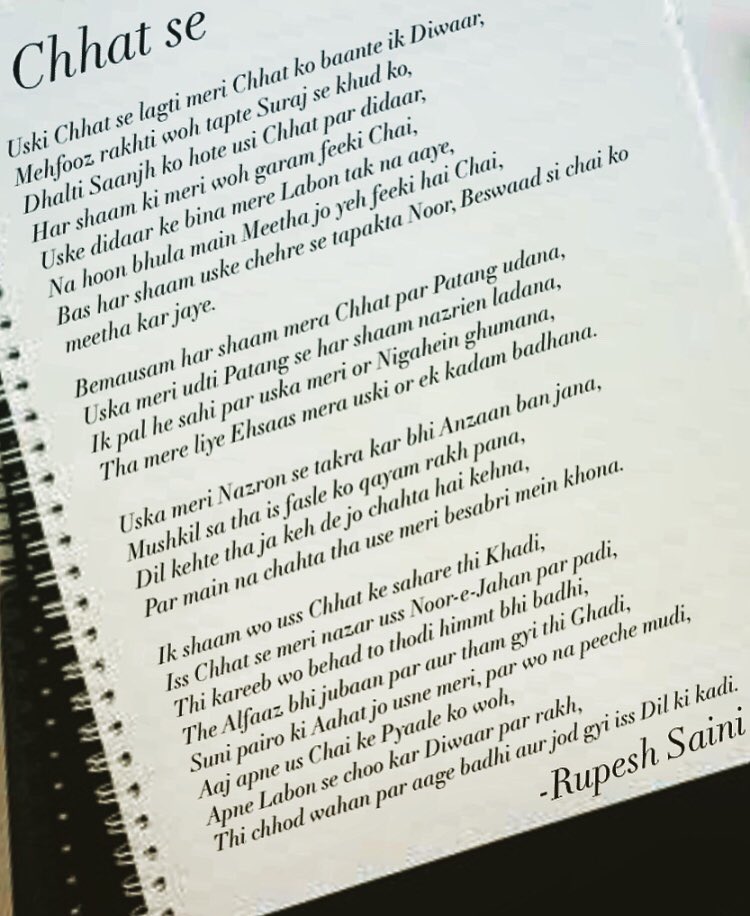 Chhat se
Uski Chhat se lagti meri Chhat ko baante ik Diwaar,
Mehfooz rakhti woh tapte Suraj se khud ko,
Dhalti Saanjh ko hote usi Chhat par didaar,
Har shaam ki meri woh garam feeki Chai,
Uske didaar ke bina mere Labon tak na aaye,
Na hoon bhula main Meetha jo yeh feeki hai Chai,
Bas har shaam uske chehre se tapakta Noor, Beswaad si chai ko
meetha kar jaye.
Bemausam har shaam mera Chhat par Patang udana,
Uska meri udti Patang se har shaam nazrien ladana,
Ik pal he sahi par uska meri or Nigahein ghumana,
Tha mere liye Ehsaas mera uski or ek kadam badhana.
Uska meri Nazron se takra kar bhi Anzaan ban jana,
Mushkil sa tha is fasle ko qayam rakh pana,
Dil kehte tha ja keh de jo chahta hai kehna,
Par main na chahta tha use meri besabri mein khona.
Ik shaam wo uss Chhat ke sahare thi Khadi,
Iss Chhat se meri nazar uss Noor-e-Jahan par padi,
Thi kareeb wo behad to thodi himmt bhi badhi,
The Alfaaz bhi jubaan par aur tham gyi thi Ghadi,
Suni pairo ki Aahat jo usne meri, par wo na peeche mudi,
Aaj apne us Chai ke Pyaale ko woh,
Apne Labon se choo kar Diwaar par rakh,
Thi chhod wahan par aage badhi aur jod gyi iss Dil ki kadi.
-Rupesh Saini